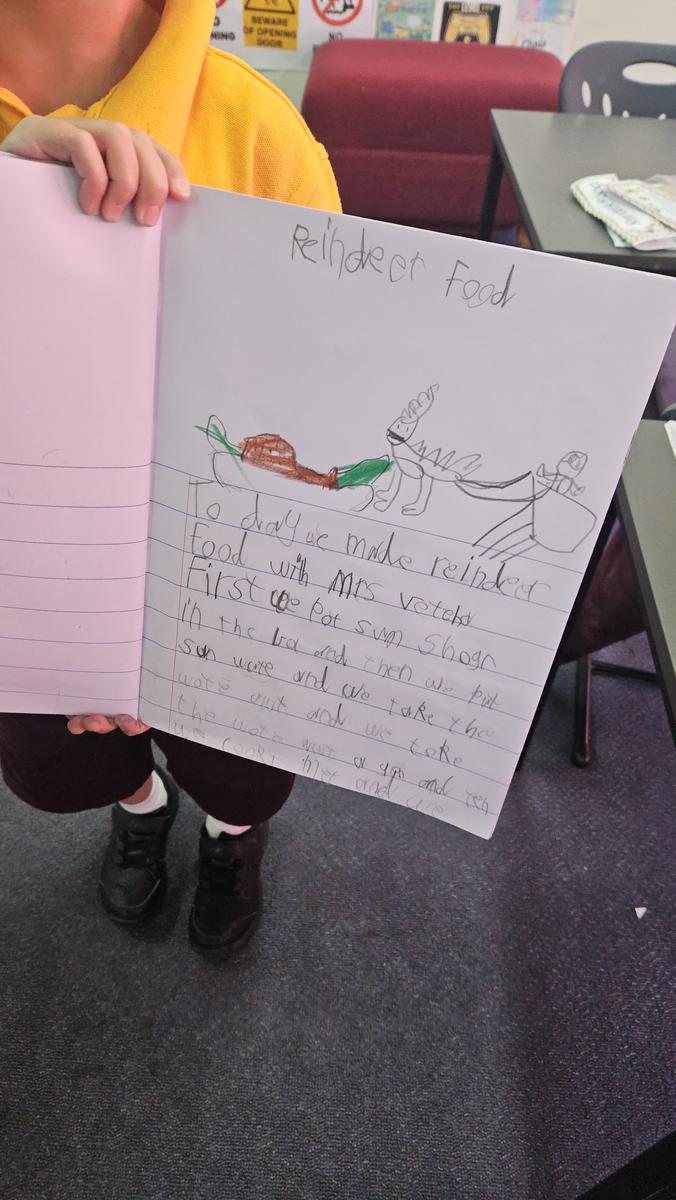 BEWARE
OF OPENING
DOOR
NO
Reindeer Food
To day we made reindeer
Food with Mrs
First we pot sum
in the and then we put
sun ware and we take the
wate aut and we take
the wate aut a and
we cook and we